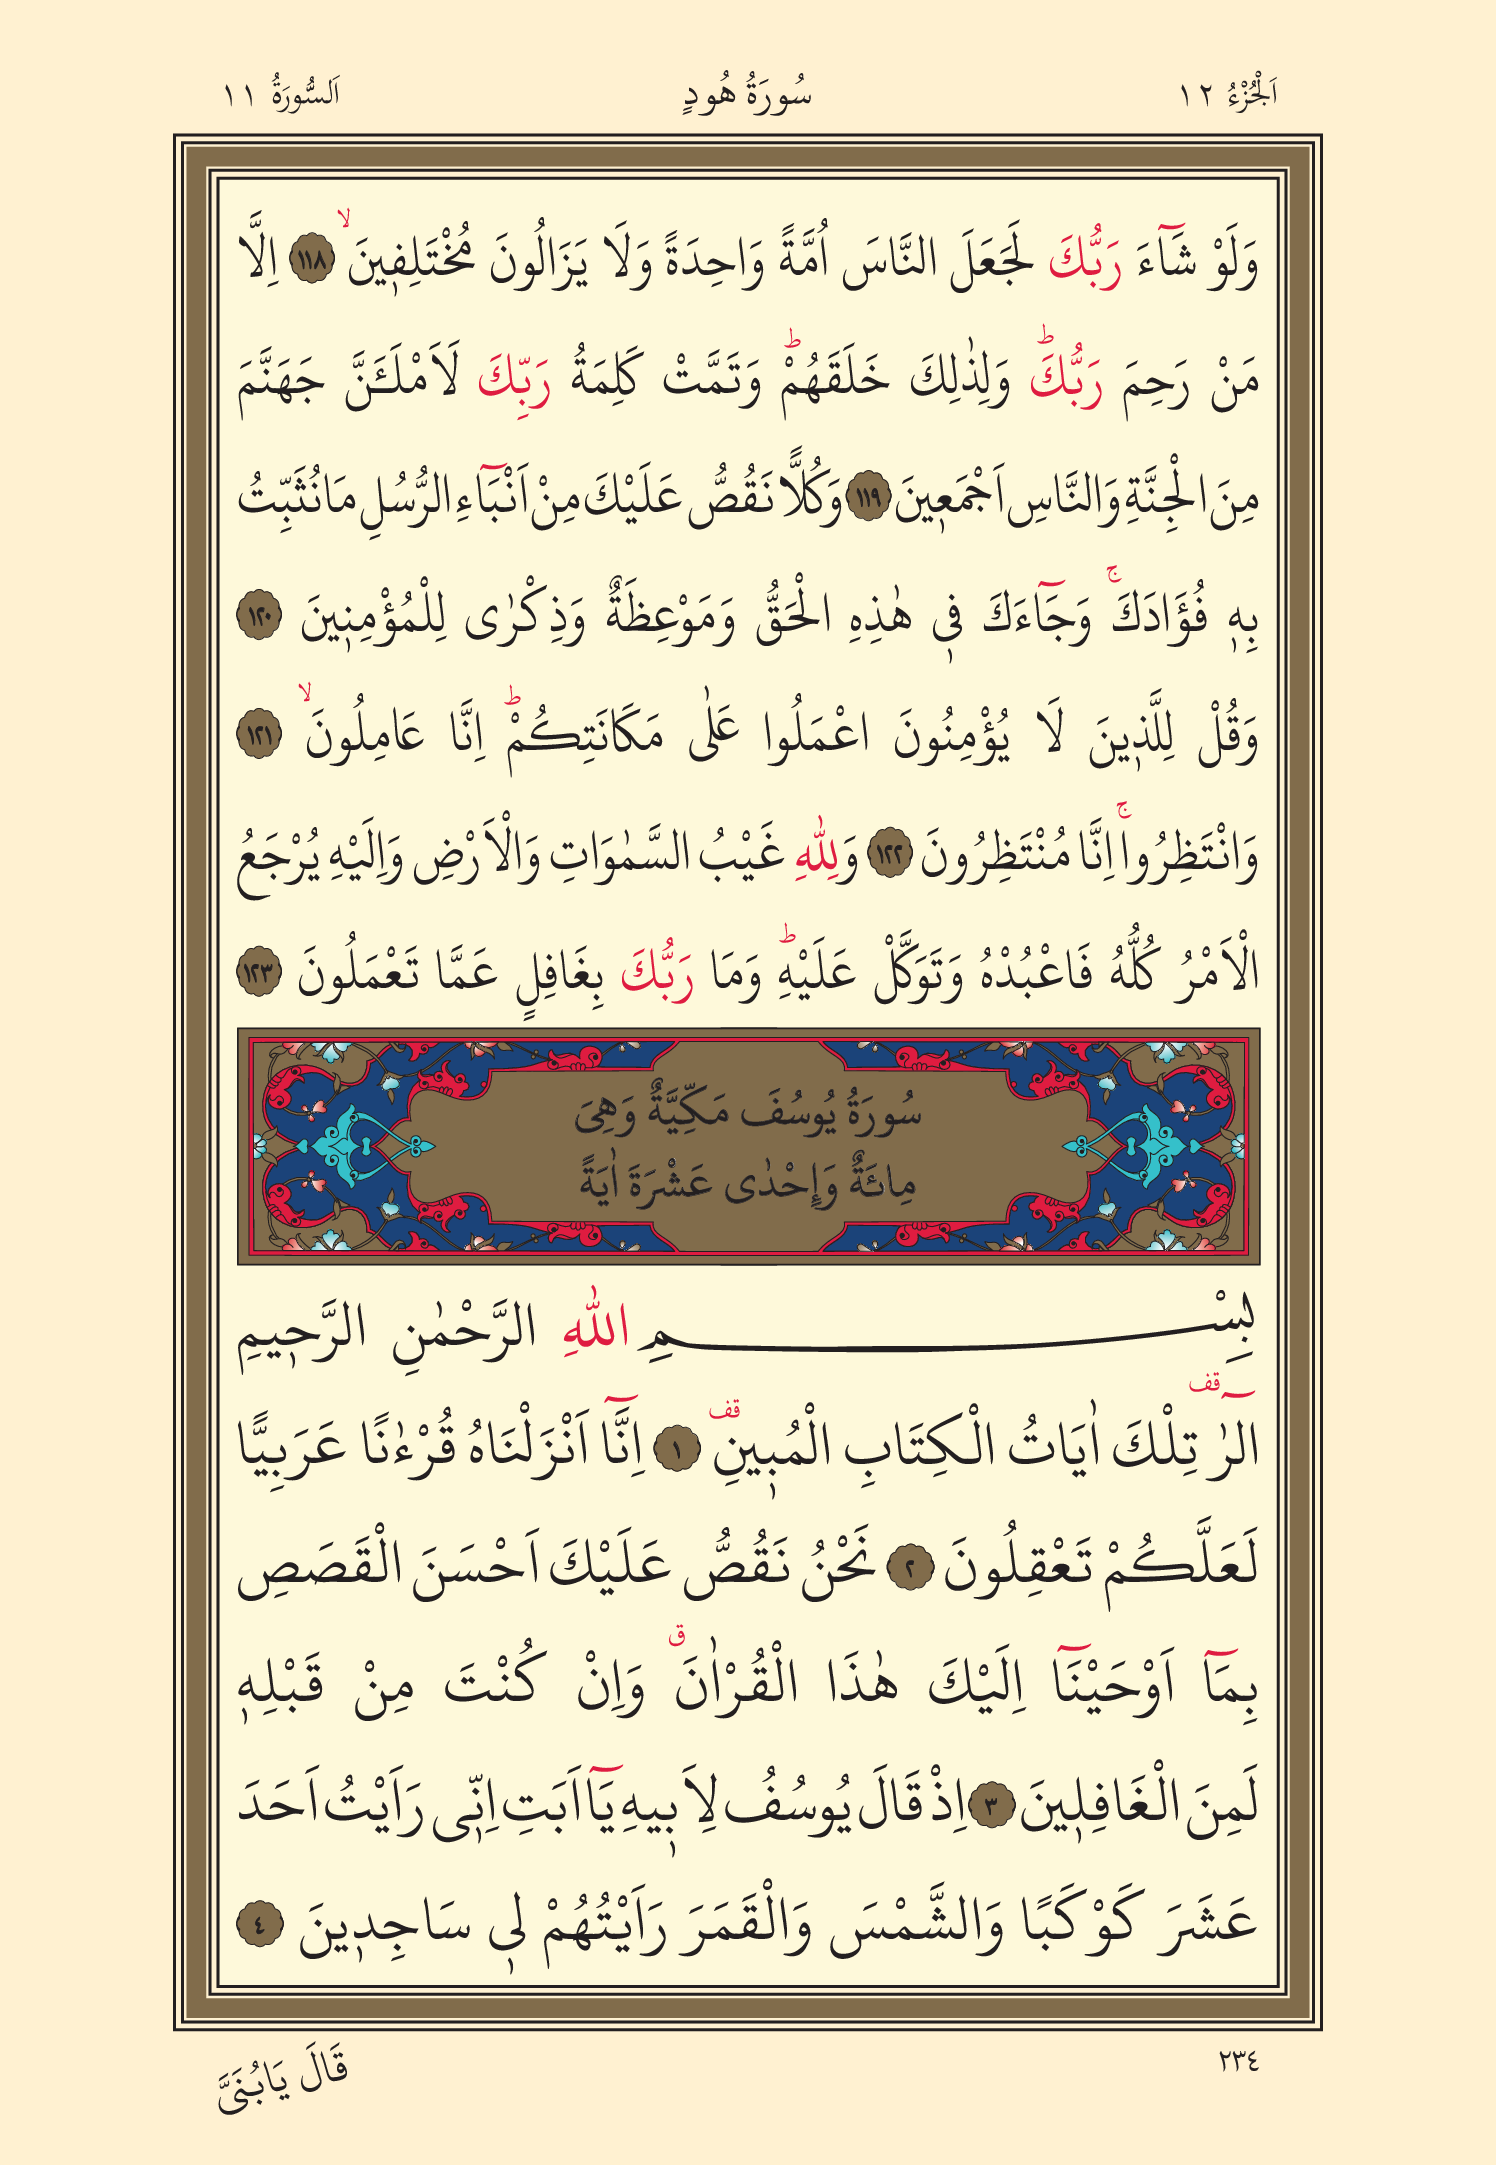 اَلْجُزْءُ ١٢
سُورَةُ هُودٍ
اَلسُّورَةُ ١١
وَلَوْ شَٓاءَ رَبُّكَ لَجَعَلَ النَّاسَ اُمَّةً وَاحِدَةً وَلَا يَزَالُونَ مُخْتَلِف۪ينَۙ ١١٨ اِلَّا
مَنْ رَحِمَ رَبُّكَۜ وَلِذٰلِكَ خَلَقَهُمْۜ وَتَمَّتْ كَلِمَةُ رَبِّكَ لَاَمْلَـَٔنَّ جَهَنَّمَ
مِنَ الْجِنَّةِ وَالنَّاسِ اَجْمَع۪ينَ ١١٩ وَكُلًّا نَقُصُّ عَلَيْكَ مِنْ اَنْبَٓاءِ الرُّسُلِ مَا نُثَبِّتُ
بِه۪ فُؤَادَكَۚ وَجَٓاءَكَ ف۪ي هٰذِهِ الْحَقُّ وَمَوْعِظَةٌ وَذِكْرٰى لِلْمُؤْمِن۪ينَ ١٢٠
وَقُلْ لِلَّذ۪ينَ لَا يُؤْمِنُونَ اعْمَلُوا عَلٰى مَكَانَتِكُمْۜ اِنَّا عَامِلُونَۙ ١٢١
وَانْتَظِرُواۚ اِنَّا مُنْتَظِرُونَ ١٢٢ وَلِلّٰهِ غَيْبُ السَّمٰوَاتِ وَالْاَرْضِ وَاِلَيْهِ يُرْجَعُ
الْاَمْرُ كُلُّهُ فَاعْبُدْهُ وَتَوَكَّلْ عَلَيْهِۜ وَمَا رَبُّكَ بِغَافِلٍ عَمَّا تَعْمَلُونَ ١٢٣
سُورَةُ يُوسُفَ مَكِّيَّةٌ وَهِيَ
مِائَةٌ وَإِحْدٰى عَشْرَةَ اٰيَةً
بِسْمِ اللّٰهِ الرَّحْمٰنِ الرَّح۪يمِ
الٓرٰ۠ تِلْكَ اٰيَاتُ الْكِتَابِ الْمُب۪ينِ۠ ١ اِنَّٓا اَنْزَلْنَاهُ قُرْءٰنًا عَرَبِيًّا
لَعَلَّكُمْ تَعْقِلُونَ ٢ نَحْنُ نَقُصُّ عَلَيْكَ اَحْسَنَ الْقَصَصِ
بِمَٓا اَوْحَيْنَٓا اِلَيْكَ هٰذَا الْقُرْاٰنَۗ وَاِنْ كُنْتَ مِنْ قَبْلِه۪
لَمِنَ الْغَافِل۪ينَ ٣ اِذْ قَالَ يُوسُفُ لِاَب۪يهِ يَٓا اَبَتِ اِنّ۪ي رَاَيْتُ اَحَدَ
عَشَرَ كَوْكَبًا وَالشَّمْسَ وَالْقَمَرَ رَاَيْتُهُمْ ل۪ي سَاجِد۪ينَ ٤
٢٣٤
قَالَ يَابُنَيَّ